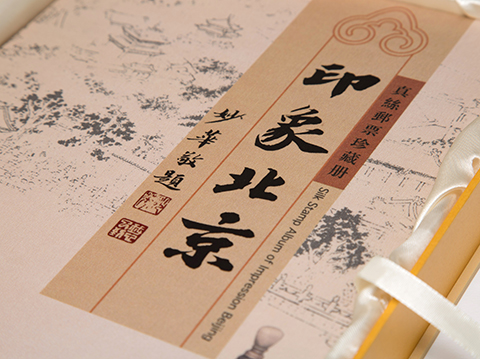 真絲郵票珍藏册
印象北京
Silk Stamp Album of Impression Beijing
妙華敬題